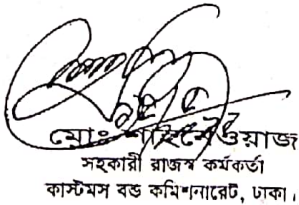 মোঃ
সহকারী রাজস্ব কর্মকর্তা
কাস্টমস বন্ড কমিশনারেট, ঢাকা।